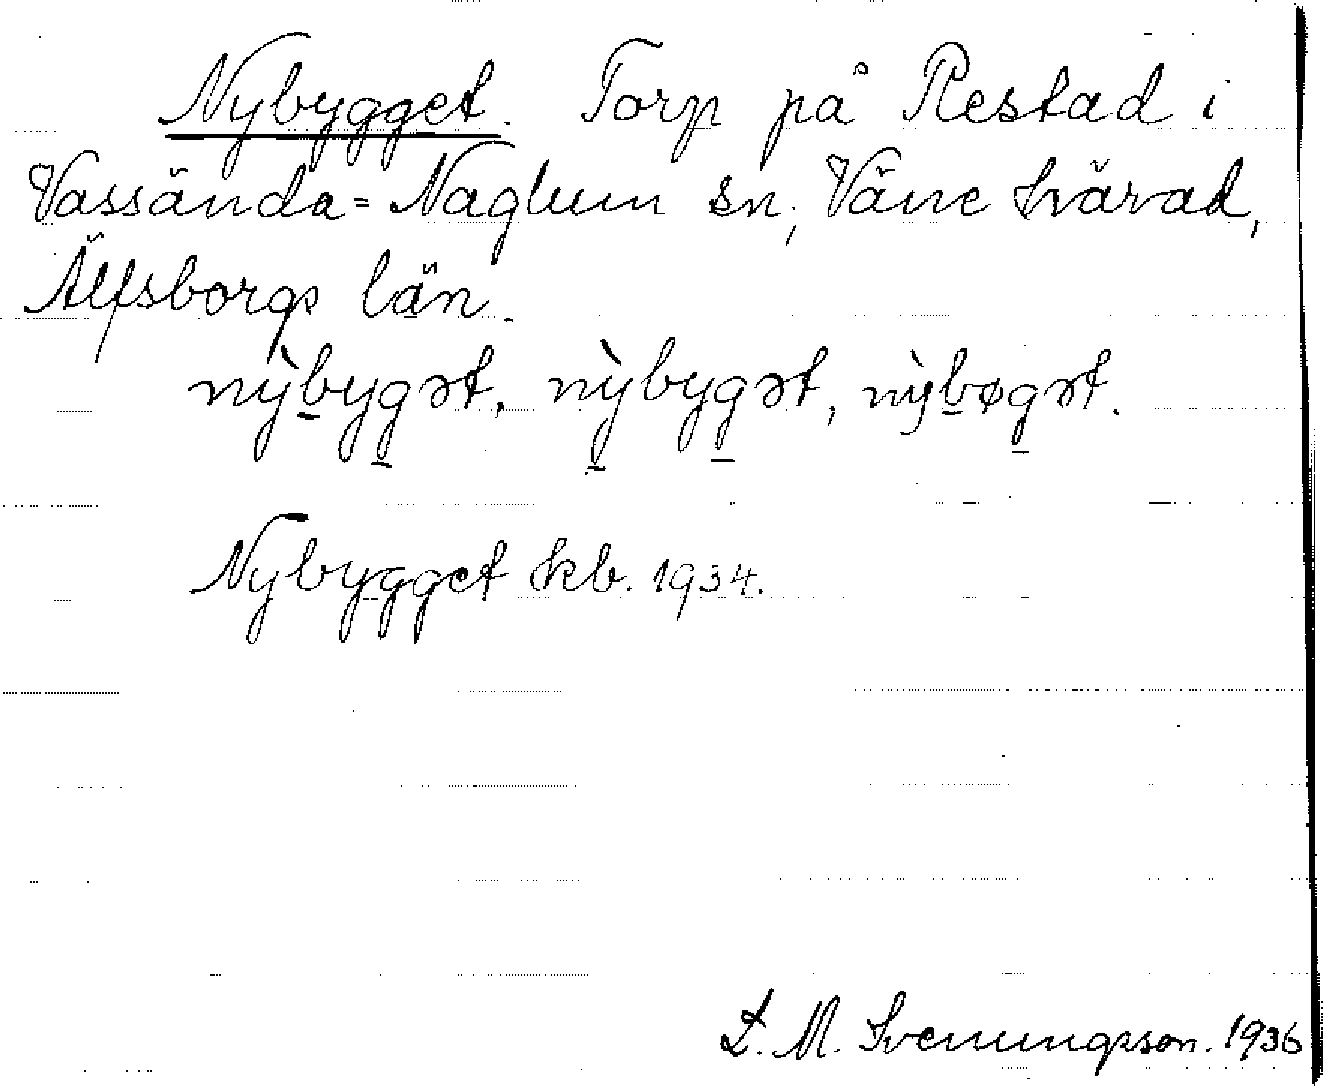 Nybygget. Torp på Restad i
Vassända-Naglum sn, Väne härad,
Älfsborgs län.
nỳbygət, nỳbygət, nỳbøgət.
Nybygget kb. 1934.
L. M. Svenungsson. 1936